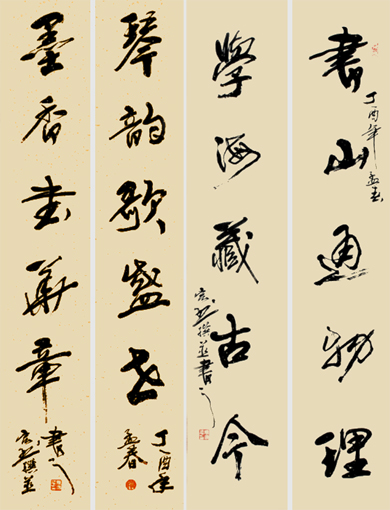 書山通物理
丁酉年孟春
學海藏古今
撰並書
琴韵歌盛世
丁酉年
孟春
墨香書華章
撰並
書